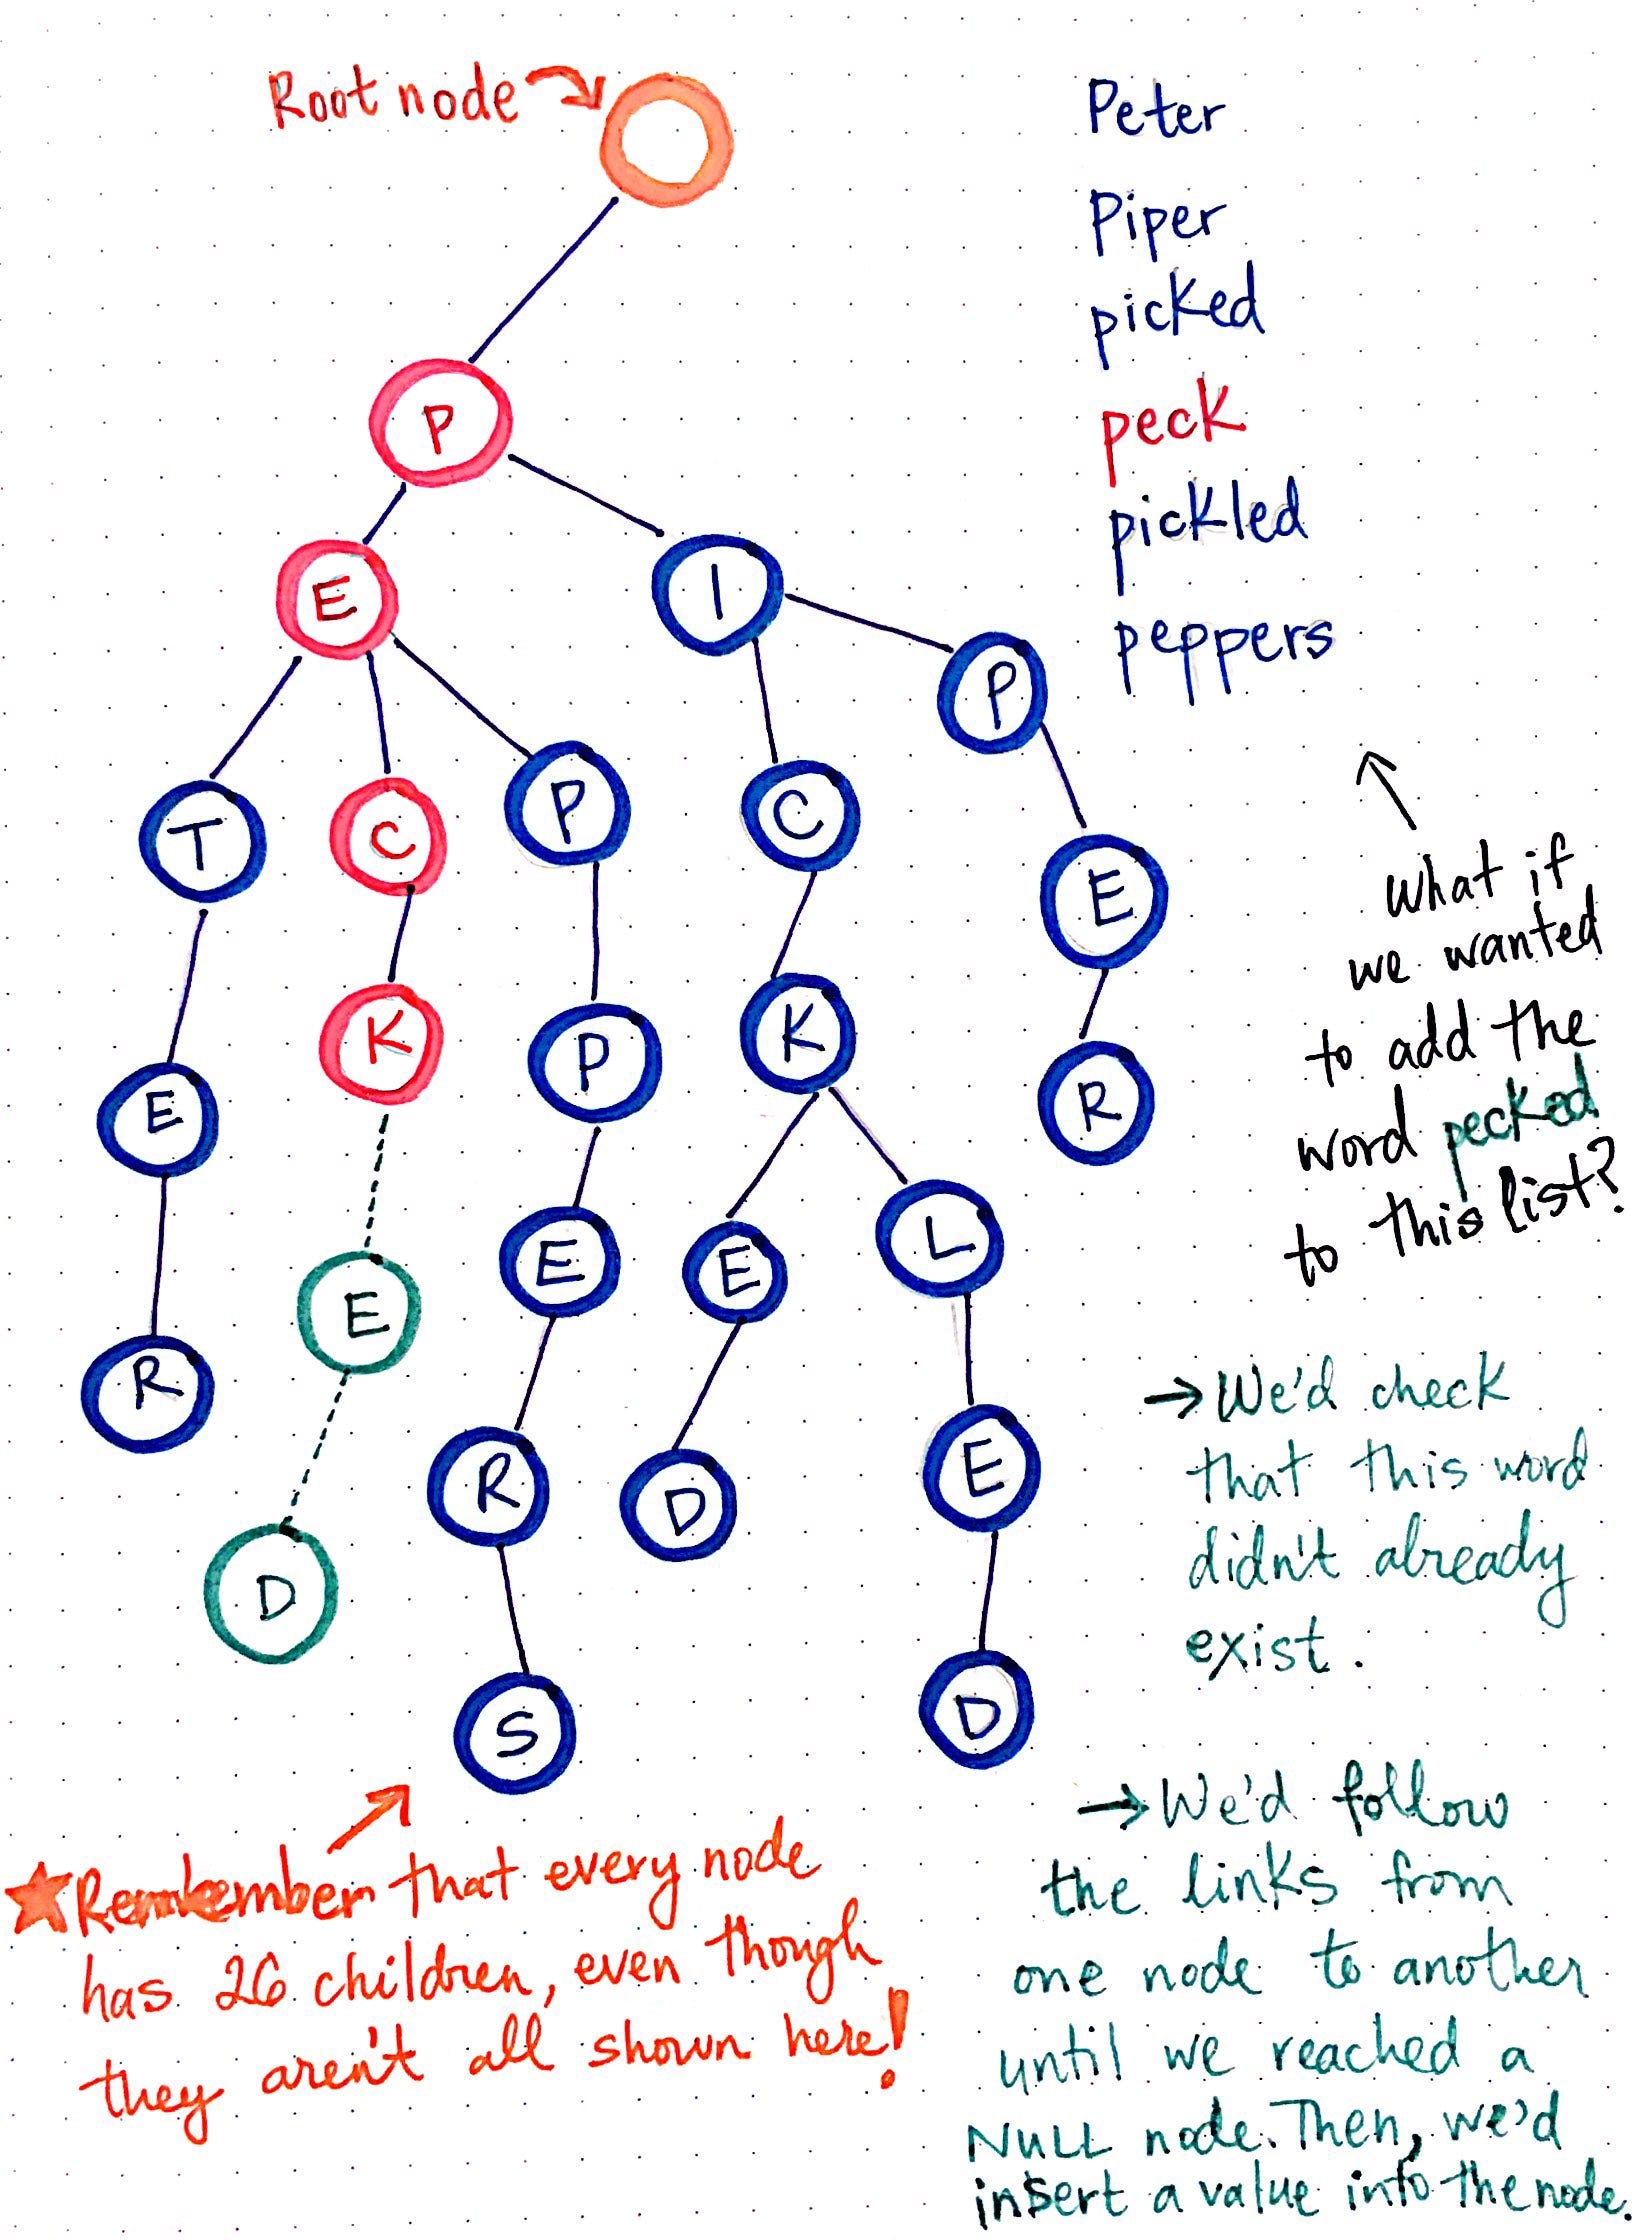 Root node
Peter
Piper
picked
peck
pickled
peppers
P
E
I
T
C
P
C
P
E
K
P
K
E
R
E
E
E
L
R
D
R
D
E
S
D
What if
we wanted
to add the
word pecked
to this list?
→ We'd check
that this word
didn't already
exist.
→ We'd follow
the links from
one node to another
until we reached a
NULL node. Then, we'd
insert a value into the node.
★ Remember that every node
has 26 children, even though
they aren't all shown here!